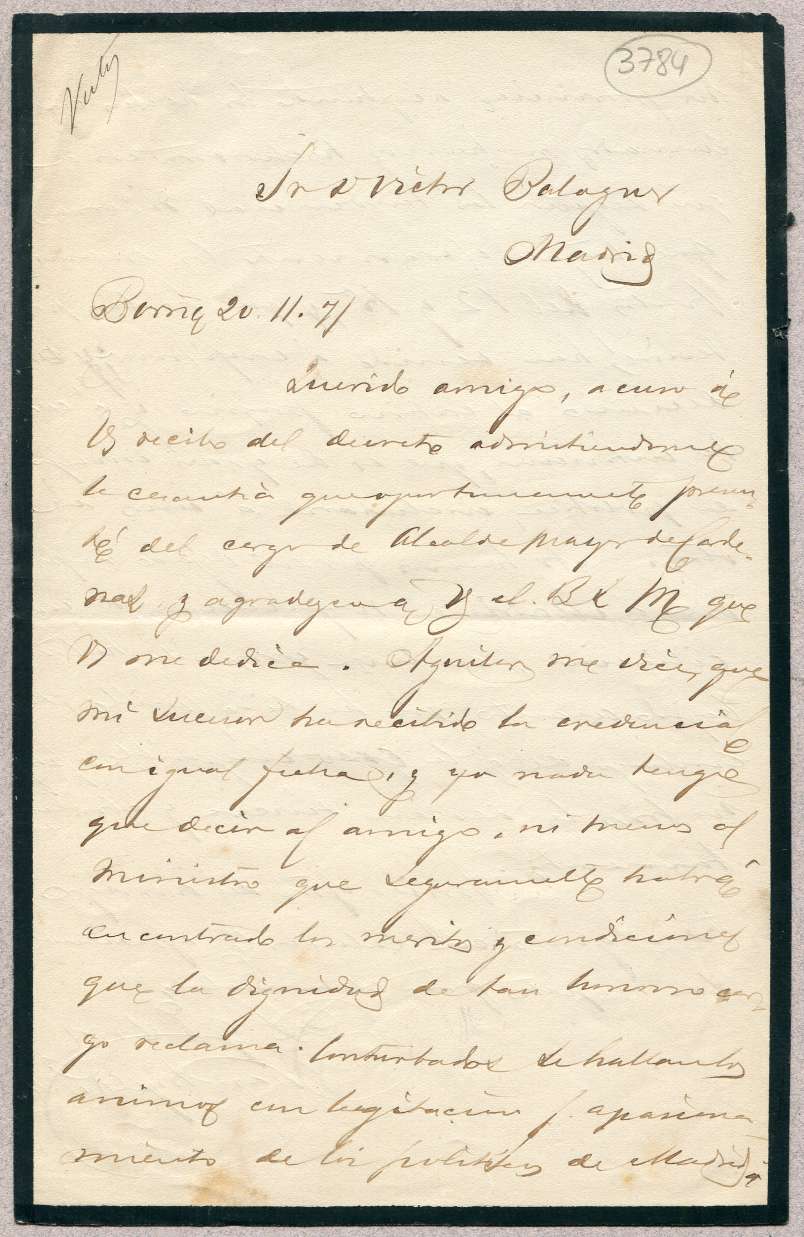 3784
Sr D Victor Balaguer
Madrid
Barna 20. 11. 71
Querido amigo, acuso á
V recibo del decreto admitiendome
la cesantia que oportunamente presen-
té del cargo de Alcalde mayor de Carde-
nas, y agradezco a V el B L M que
V me dedica. Aguilera me dice, que
mi sucesor ha recibido la credencial
con igual fecha, y yo nada tengo
que decir al amigo, ni menos al
Ministro que seguramente habrá
encontrado los meritos y condiciones
que la dignidad de tan honroso car-
go reclama. Conturbados se hallan los
animos con la agitacion y apasiona
miento de los politicos de Madrid,